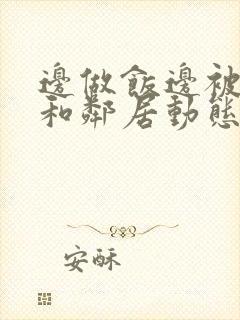 邊做飯邊被
和鄰居動態
安酥